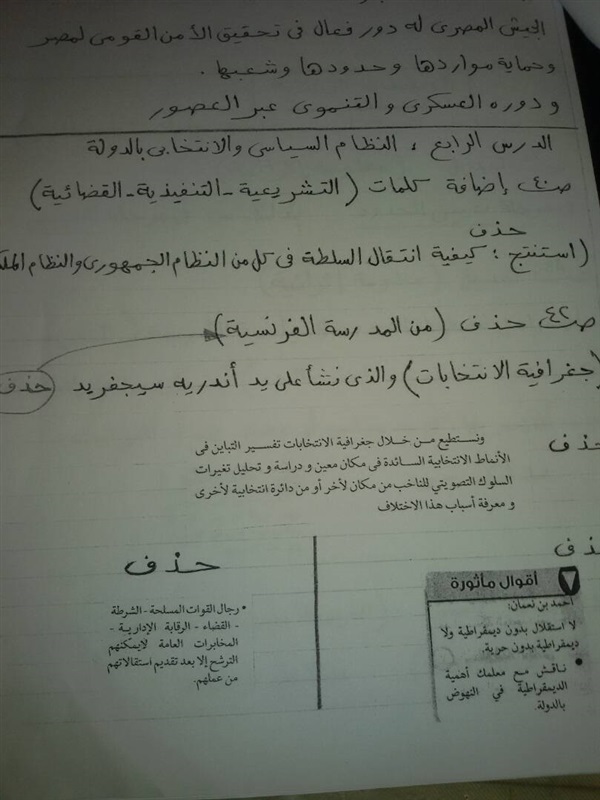 الجيش المصرى له دور فعال فى تحقيق الأمن القومى لمصر
وحماية مواردها وحدودها وشعبها .
ودوره العسكرى والتنموى عبر العصور
الدرس الرابع : النظام السياسى والانتخابى بالدولة
صـ٤٠ إضافة كلمات (التشريعية - التنفيذية - القضائية)
حذف
(استنتج : كيفية انتقال السلطة فى كل من النظام الجمهورى والنظام الملك
صـ٤٢ حذف (من المدرسة الفرنسية)
(جغرافية الانتخابات) والذى نشأ على يد أندريه سيجفريد حذف
حذف
ونستطيع من خلال جغرافية الانتخابات تفسير التباين فى
الأنماط الانتخابية السائدة فى مكان معين ودراسة و تحليل تغيرات
السلوك التصويتي للناخب من مكان لآخر أو من دائرة انتخابية لأخرى
و معرفة أسباب هذا الاختلاف
حذف
أقوال مأثورة
أحمد بن نعمان:
لا استقلال بدون ديمقراطية ولا
ديمقراطية بدون حرية.
• ناقش مع معلمك أهمية
الديمقراطية في النهوض
بالدولة.
حذف
• رجال القوات المسلحة - الشرطة
- القضاء - الرقابة الإدارية -
المخابرات العامة لايمكنهم
الترشح إلا بعد تقديم استقالاتهم
من عملهم.